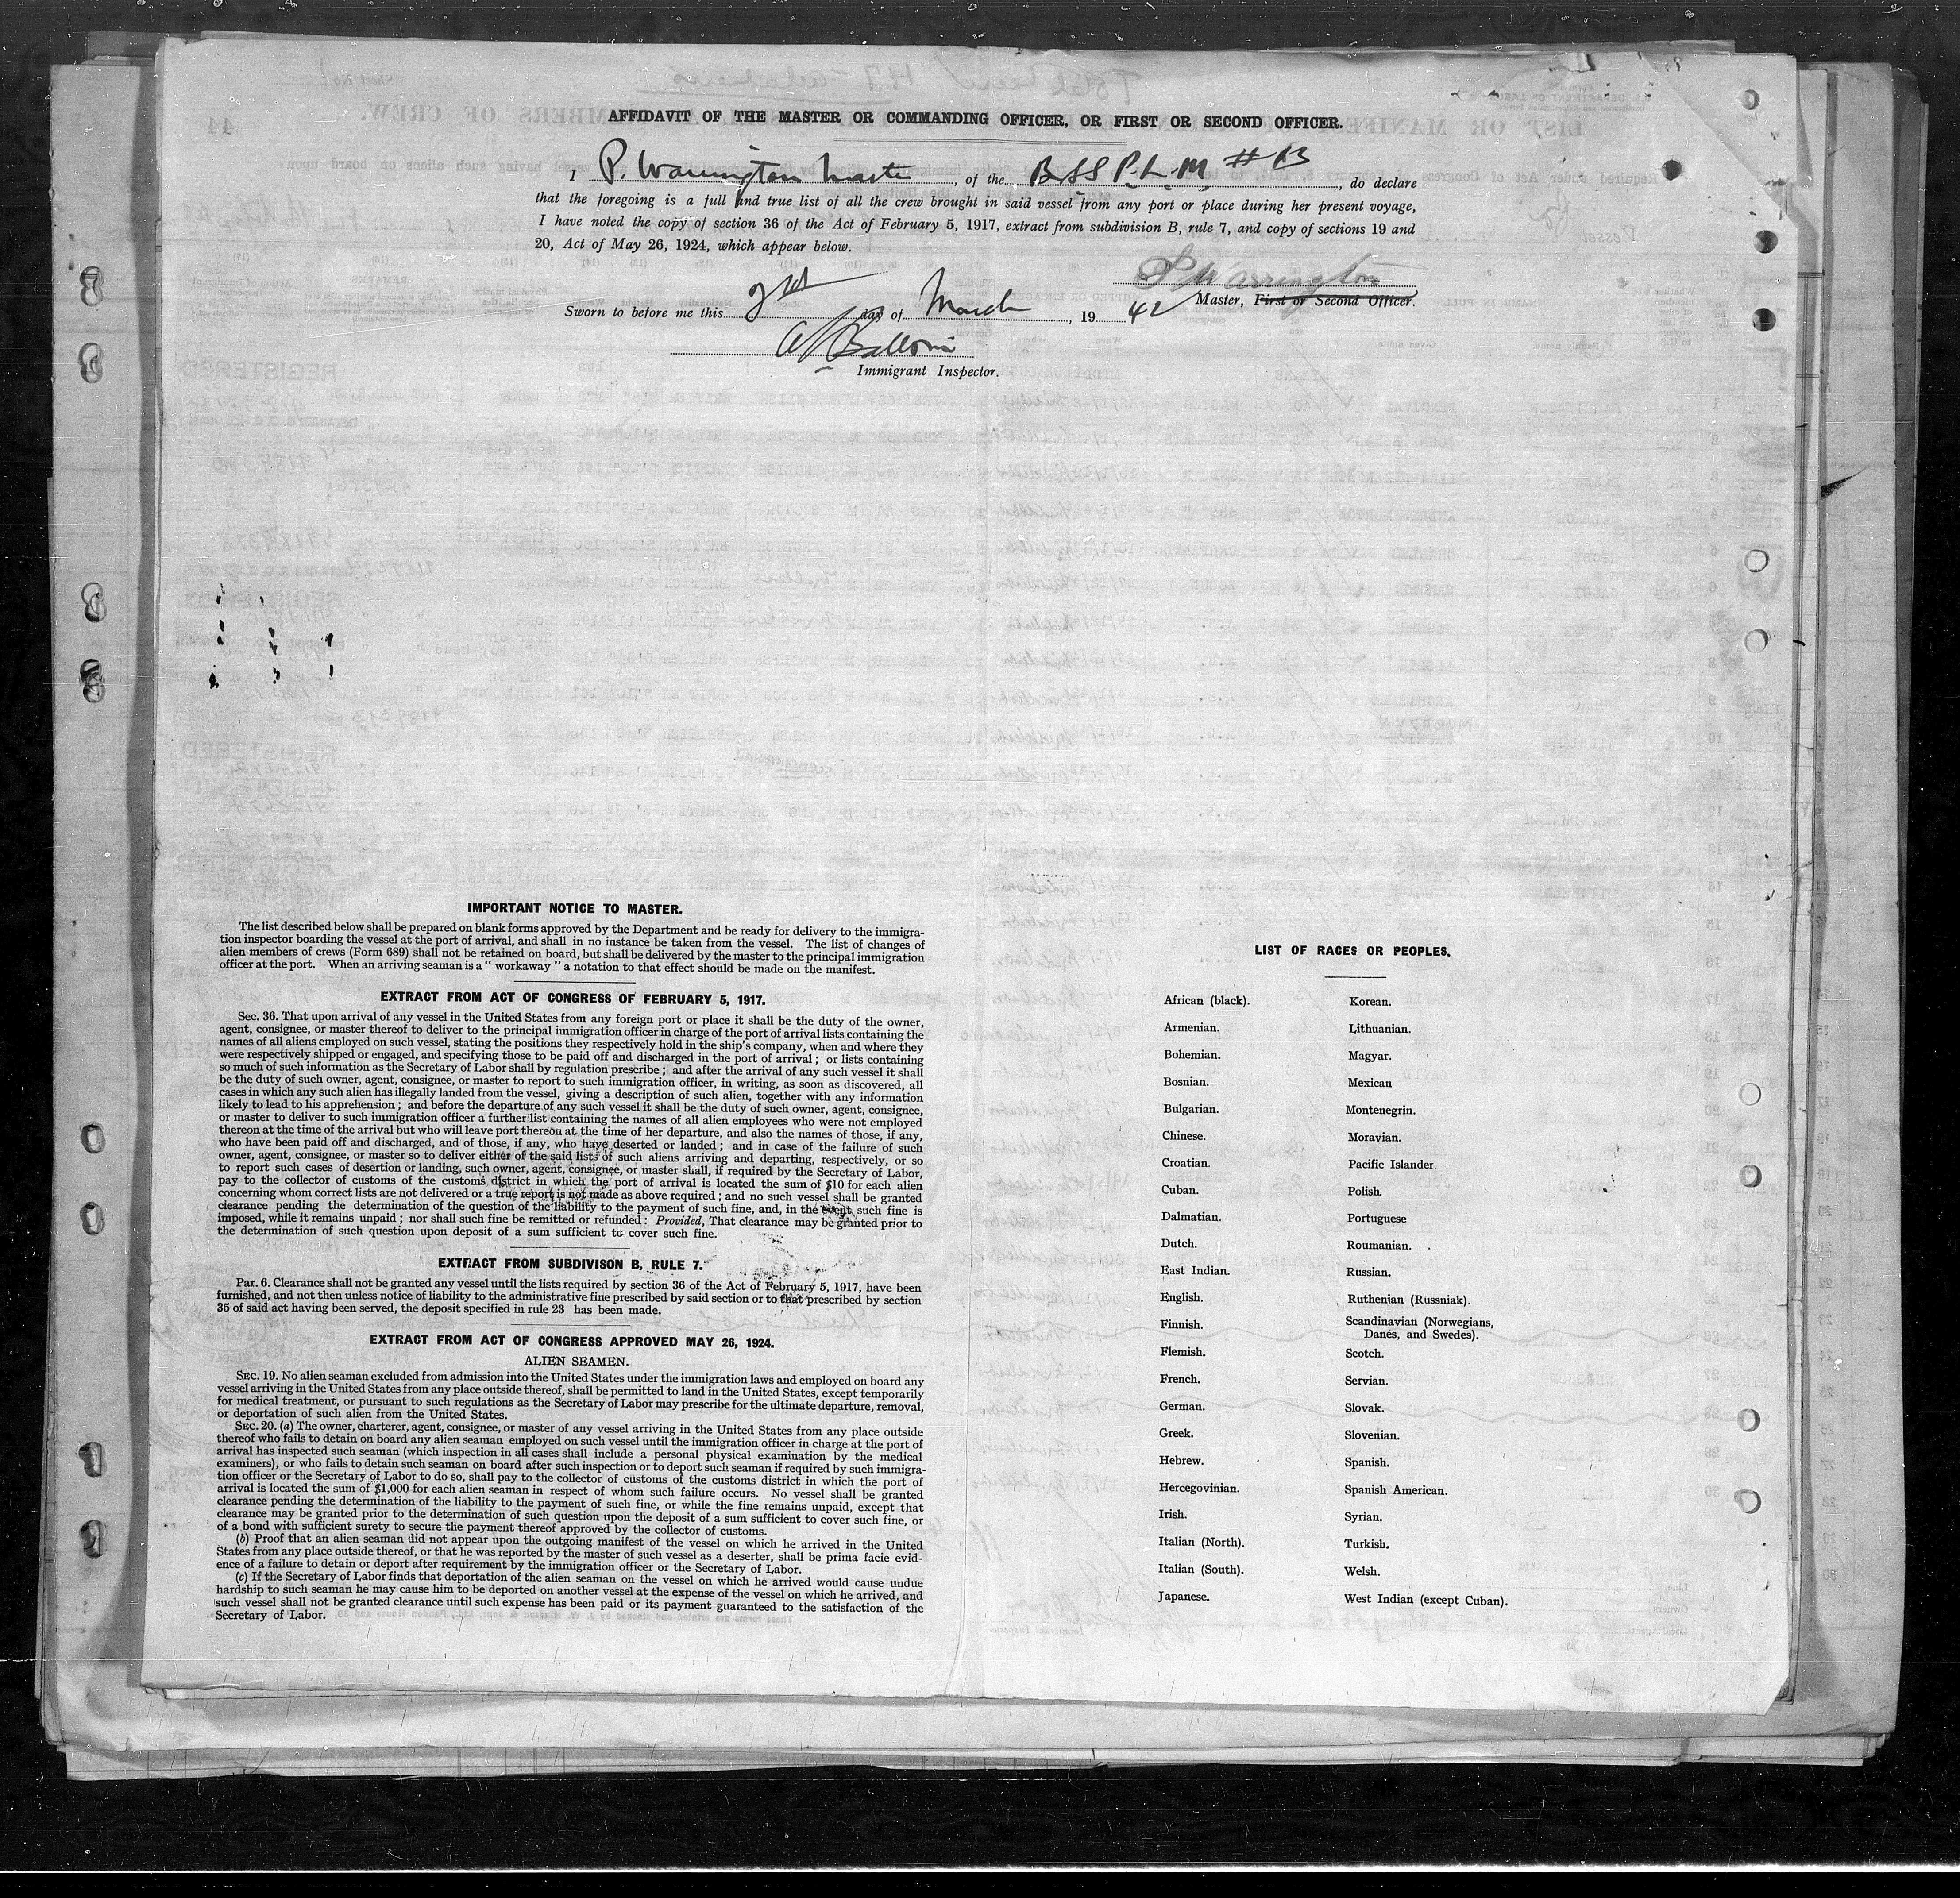 AFFIDAVIT OF THE MASTER OR COMMANDING OFFICER, OR FIRST OR SECOND OFFICER.
I P. Warrington Master, of the BrSS P.L.M. # 13, do declare
that the foregoing is a full and true list of all the crew brought in said vessel from any port or place during her present voyage,
I have noted the copy of section 36 of the Act of February 5, 1917, extract from subdivision B, rule 7, and copy of sections 19 and
20, Act of May 26, 1924, which appear below.
P Warrington
Master, First or Second Officer.
Sworn to before me this day of March, 19 42
Immigrant Inspector.
IMPORTANT NOTICE TO MASTER.
The list described below shall be prepared on blank forms approved by the Department and be ready for delivery to the immigra-
tion inspector boarding the vessel at the port of arrival, and shall in no instance be taken from the vessel. The list of changes of
alien members of crews (Form 689) shall not be retained on board, but shall be delivered by the master to the principal immigration
officer at the port. When an arriving seaman is a " workaway " a notation to that effect should be made on the manifest.
EXTRACT FROM ACT OF CONGRESS OF FEBRUARY 5, 1917.
Sec. 36. That upon arrival of any vessel in the United States from any foreign port or place it shall be the duty of the owner,
agent, consignee, or master thereof to deliver to the principal immigration officer in charge of the port of arrival lists containing the
names of all aliens employed on such vessel, stating the positions they respectively hold in the ship's company, when and where they
were respectively shipped or engaged, and specifying those to be paid off and discharged in the port of arrival ; or lists containing
so much of such information as the Secretary of Labor shall by regulation prescribe ; and after the arrival of any such vessel it shall
be the duty of such owner, agent, consignee, or master to report to such immigration officer, in writing, as soon as discovered, all
cases in which any such alien has illegally landed from the vessel, giving a description of such alien, together with any information
likely to lead to his apprehension ; and before the departure of any such vessel it shall be the duty of such owner, agent, consignee,
or master to deliver to such immigration officer a further list containing the names of all alien employees who were not employed
thereon at the time of the arrival but who will leave port thereon at the time of her departure, and also the names of those, if any,
who have been paid off and discharged, and of those, if any, who have deserted or landed ; and in case of the failure of such
owner, agent, consignee, or master so to deliver either of the said lists of such aliens arriving and departing, respectively, or so
to report such cases of desertion or landing, such owner, agent, consignee, or master shall, if required by the Secretary of Labor,
pay to the collector of customs of the customs district in which the port of arrival is located the sum of $10 for each alien
concerning whom correct lists are not delivered or a true report is not made as above required ; and no such vessel shall be granted
clearance pending the determination of the question of the liability to the payment of such fine, and, in the event such fine is
imposed, while it remains unpaid ; nor shall such fine be remitted or refunded : Provided, That clearance may be granted prior to
the determination of such question upon deposit of a sum sufficient to cover such fine.
EXTRACT FROM SUBDIVISON B, RULE 7.
Par. 6. Clearance shall not be granted any vessel until the lists required by section 36 of the Act of February 5, 1917, have been
furnished, and not then unless notice of liability to the administrative fine prescribed by said section or to that prescribed by section
35 of said act having been served, the deposit specified in rule 23 has been made.
EXTRACT FROM ACT OF CONGRESS APPROVED MAY 26, 1924.
ALIEN SEAMEN.
SEC. 19. No alien seaman excluded from admission into the United States under the immigration laws and employed on board any
vessel arriving in the United States from any place outside thereof, shall be permitted to land in the United States, except temporarily
for medical treatment, or pursuant to such regulations as the Secretary of Labor may prescribe for the ultimate departure, removal,
or deportation of such alien from the United States.
SEC. 20. (a) The owner, charterer, agent, consignee, or master of any vessel arriving in the United States from any place outside
thereof who fails to detain on board any alien seaman employed on such vessel until the immigration officer in charge at the port of
arrival has inspected such seaman (which inspection in all cases shall include a personal physical examination by the medical
examiners), or who fails to detain such seaman on board after such inspection or to deport such seaman if required by such immigra-
tion officer or the Secretary of Labor to do so, shall pay to the collector of customs of the customs district in which the port of
arrival is located the sum of $1,000 for each alien seaman in respect of whom such failure occurs. No vessel shall be granted
clearance pending the determination of the liability to the payment of such fine, or while the fine remains unpaid, except that
clearance may be granted prior to the determination of such question upon the deposit of a sum sufficient to cover such fine, or
of a bond with sufficient surety to secure the payment thereof approved by the collector of customs.
(b) Proof that an alien seaman did not appear upon the outgoing manifest of the vessel on which he arrived in the United
States from any place outside thereof, or that he was reported by the master of such vessel as a deserter, shall be prima facie evid-
ence of a failure to detain or deport after requirement by the immigration officer or the Secretary of Labor.
(c) If the Secretary of Labor finds that deportation of the alien seaman on the vessel on which he arrived would cause undue
hardship to such seaman he may cause him to be deported on another vessel at the expense of the vessel on which he arrived, and
such vessel shall not be granted clearance until such expense has been paid or its payment guaranteed to the satisfaction of the
Secretary of Labor.
LIST OF RACES OR PEOPLES.
African (black).
Armenian.
Bohemian.
Bosnian.
Bulgarian.
Chinese.
Croatian.
Cuban.
Dalmatian.
Dutch.
East Indian.
English.
Finnish.
Flemish.
French.
German.
Greek.
Hebrew.
Hercegovinian.
Irish.
Italian (North).
Italian (South).
Japanese.
Korean.
Lithuanian.
Magyar.
Mexican
Montenegrin.
Moravian.
Pacific Islander
Polish.
Portuguese
Roumanian.
Russian.
Ruthenian (Russniak).
Scandinavian (Norwegians,
Danes, and Swedes).
Scotch.
Servian.
Slovak.
Slovenian.
Spanish.
Spanish American.
Syrian.
Turkish.
Welsh.
West Indian (except Cuban).